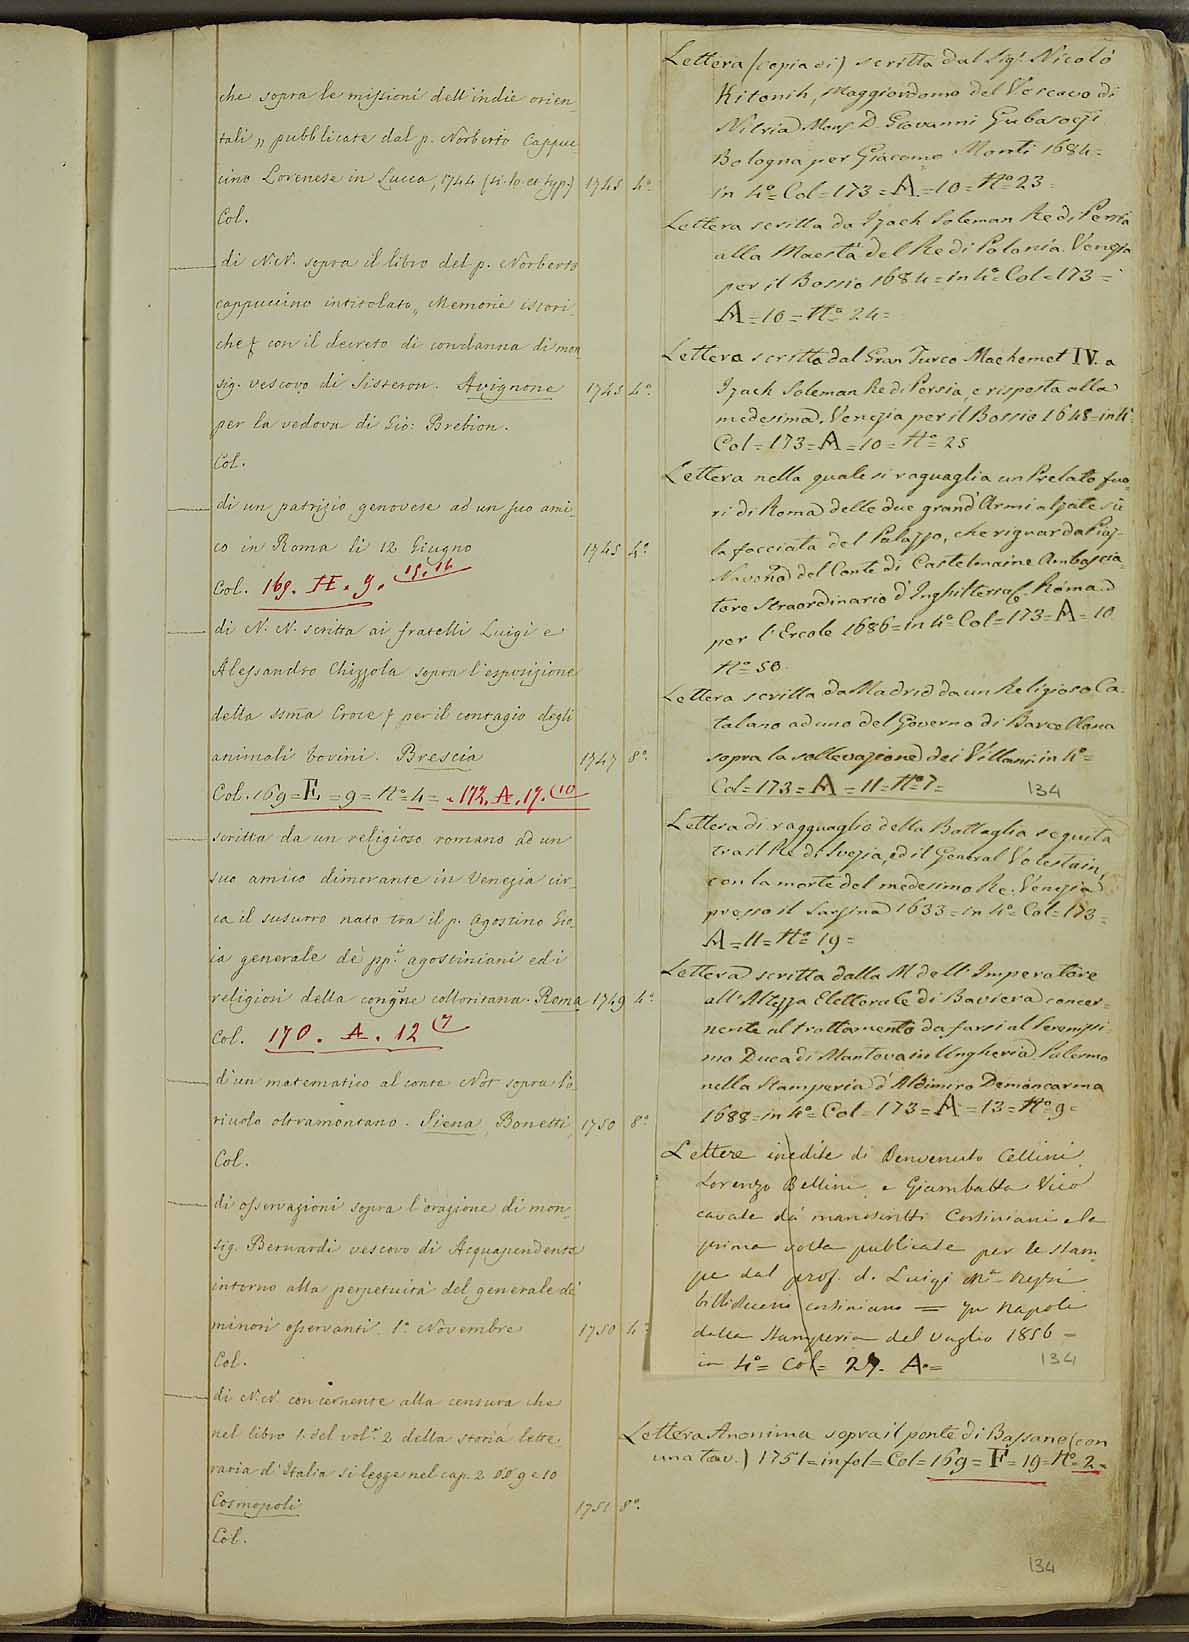 che sopra le missioni dell'indie orien-
tali „ pubblicate dal p. Norberto Cappuc-
cino Lorenese in Lucca, 1744 (si. lo. et typ.) 1745 4º
Col.
di N.N. sopra il libro del p. Norberto
cappuccino intitolato „ Memorie istori-
che con il decreto di condanna di mon
sig. vescovo di Sisteron. Avignone 1745 4º.
per la vedova di Gio: Brebion.
Col.
di un patrizio genovese ad un suo ami-
co in Roma li 12 Giugno 1745 4º.
Col. 169. H. 9. 15.16
di N. N. scritta ai fratelli Luigi e
Alessandro Chizzola sopra l'esposizione
della ssma Croce per il contagio degli
animali bovini. Brescia 1747 8º.
Col. 169=E=9=Nº=4= 172.A.17.(10
scritta da un religioso romano ad un
suo amico dimorante in Venezia cir-
ca il susurro nato tra il p. Agostino Gio-
ia generale de' pp. agostiniani ed i
religiosi della congne colloritana. Roma 1749 4º.
Col. 170. A. 12 (7
d'un matematico al conte Not sopra l'o-
riuolo oltramontano. Siena, Bonetti, 1750 8º.
Col.
di osservazioni sopra l'orazione di mon-
sig. Bernardi vescovo di Acquapendente
intorno alla perpetuità del generale di
minori osservanti. 1º. Novembre 1750 4º.
Col.
di N.N. concernente alla censura che
nel libro 1. del vol.e 2 della storia lette
raria d'Italia si legge nel cap. 2 §§ 9 e 10
Cosmopoli 1751 8º.
Col.
Lettera (copia di) scritta dal Sigr. Nicolò
Kitonih, Maggiordomo del Vescavo di
Nitria Mons. D. Giovanni Gubasoczi
Bologna per Giacomo Monti 1684=
in 4º=Col=173=A=10=Nº23=
Lettera scritta da Izach Soleman Re di Persia
alla Maestà del Re di Polonia. Venezia
per il Bossio 1684=in 4º=Col=173=
A=10=Nº 24=
Lettera scritta dal Gran Turco Machemet IV. a
Izach Soleman Re di Persia, e risposta alla
medesima. Venezia per il Bossio 1648=in 4º
Col=173=A=10=Nº 25
Lettera nella quale si raguaglia un Prelato fuo-
ri di Roma delle due grand'Armi alzate sù
la facciata del Palazzo, che riguarda Piaz-
Navona del Conte di Castelmaine Ambascia-
tore Straordinario d'Inghilterra &. Roma
per l'Ercole 1686=in 4º=Col=173=A=10
Nº=50.
Lettera scritta da Madrid da un Religioso Ca-
talano ad uno del Governo di Barcellona
sopra la sollevazione dei Villani in 4º=
Col=173=A=11=Nº7=
134
Lettera di ragguaglio della Battaglia seguita
tra il Re di Svezia, ed il General Volestain,
con la morte del medesimo Re. Venezia
presso il Sarzina 1633=in 4º=Col=173=
A=11=Nº 19=
Lettera scritta dalla M. dell'Imperatore
all'Altezza Elettorale di Baviera concer-
nente al trattamento da farsi al Serenissi-
mo Duca di Mantova in Ungheria Palermo
nella Stamperia d'Aldimiro Demancarma
1688=in 4º=Col=173=A=13=Nº9=
Lettere inedite di Benvenuto Cellini,
Lorenzo Bellini, e Giambatta Vico
cavate da' manoscritti Corsiniani e la
prima volta publicate per le stam
pe dal prof. d. Luigi Mª Rezzi
bibliotecario corsiniano = In Napoli
dalla Stamperia del Vaglio 1856 -
in 4º= Col= 27. A.=
134
Lettera Anonima sopra il ponte di Bassano (con
una tav.) 1751=in fol=Col=169=F=19=Nº=2=
134